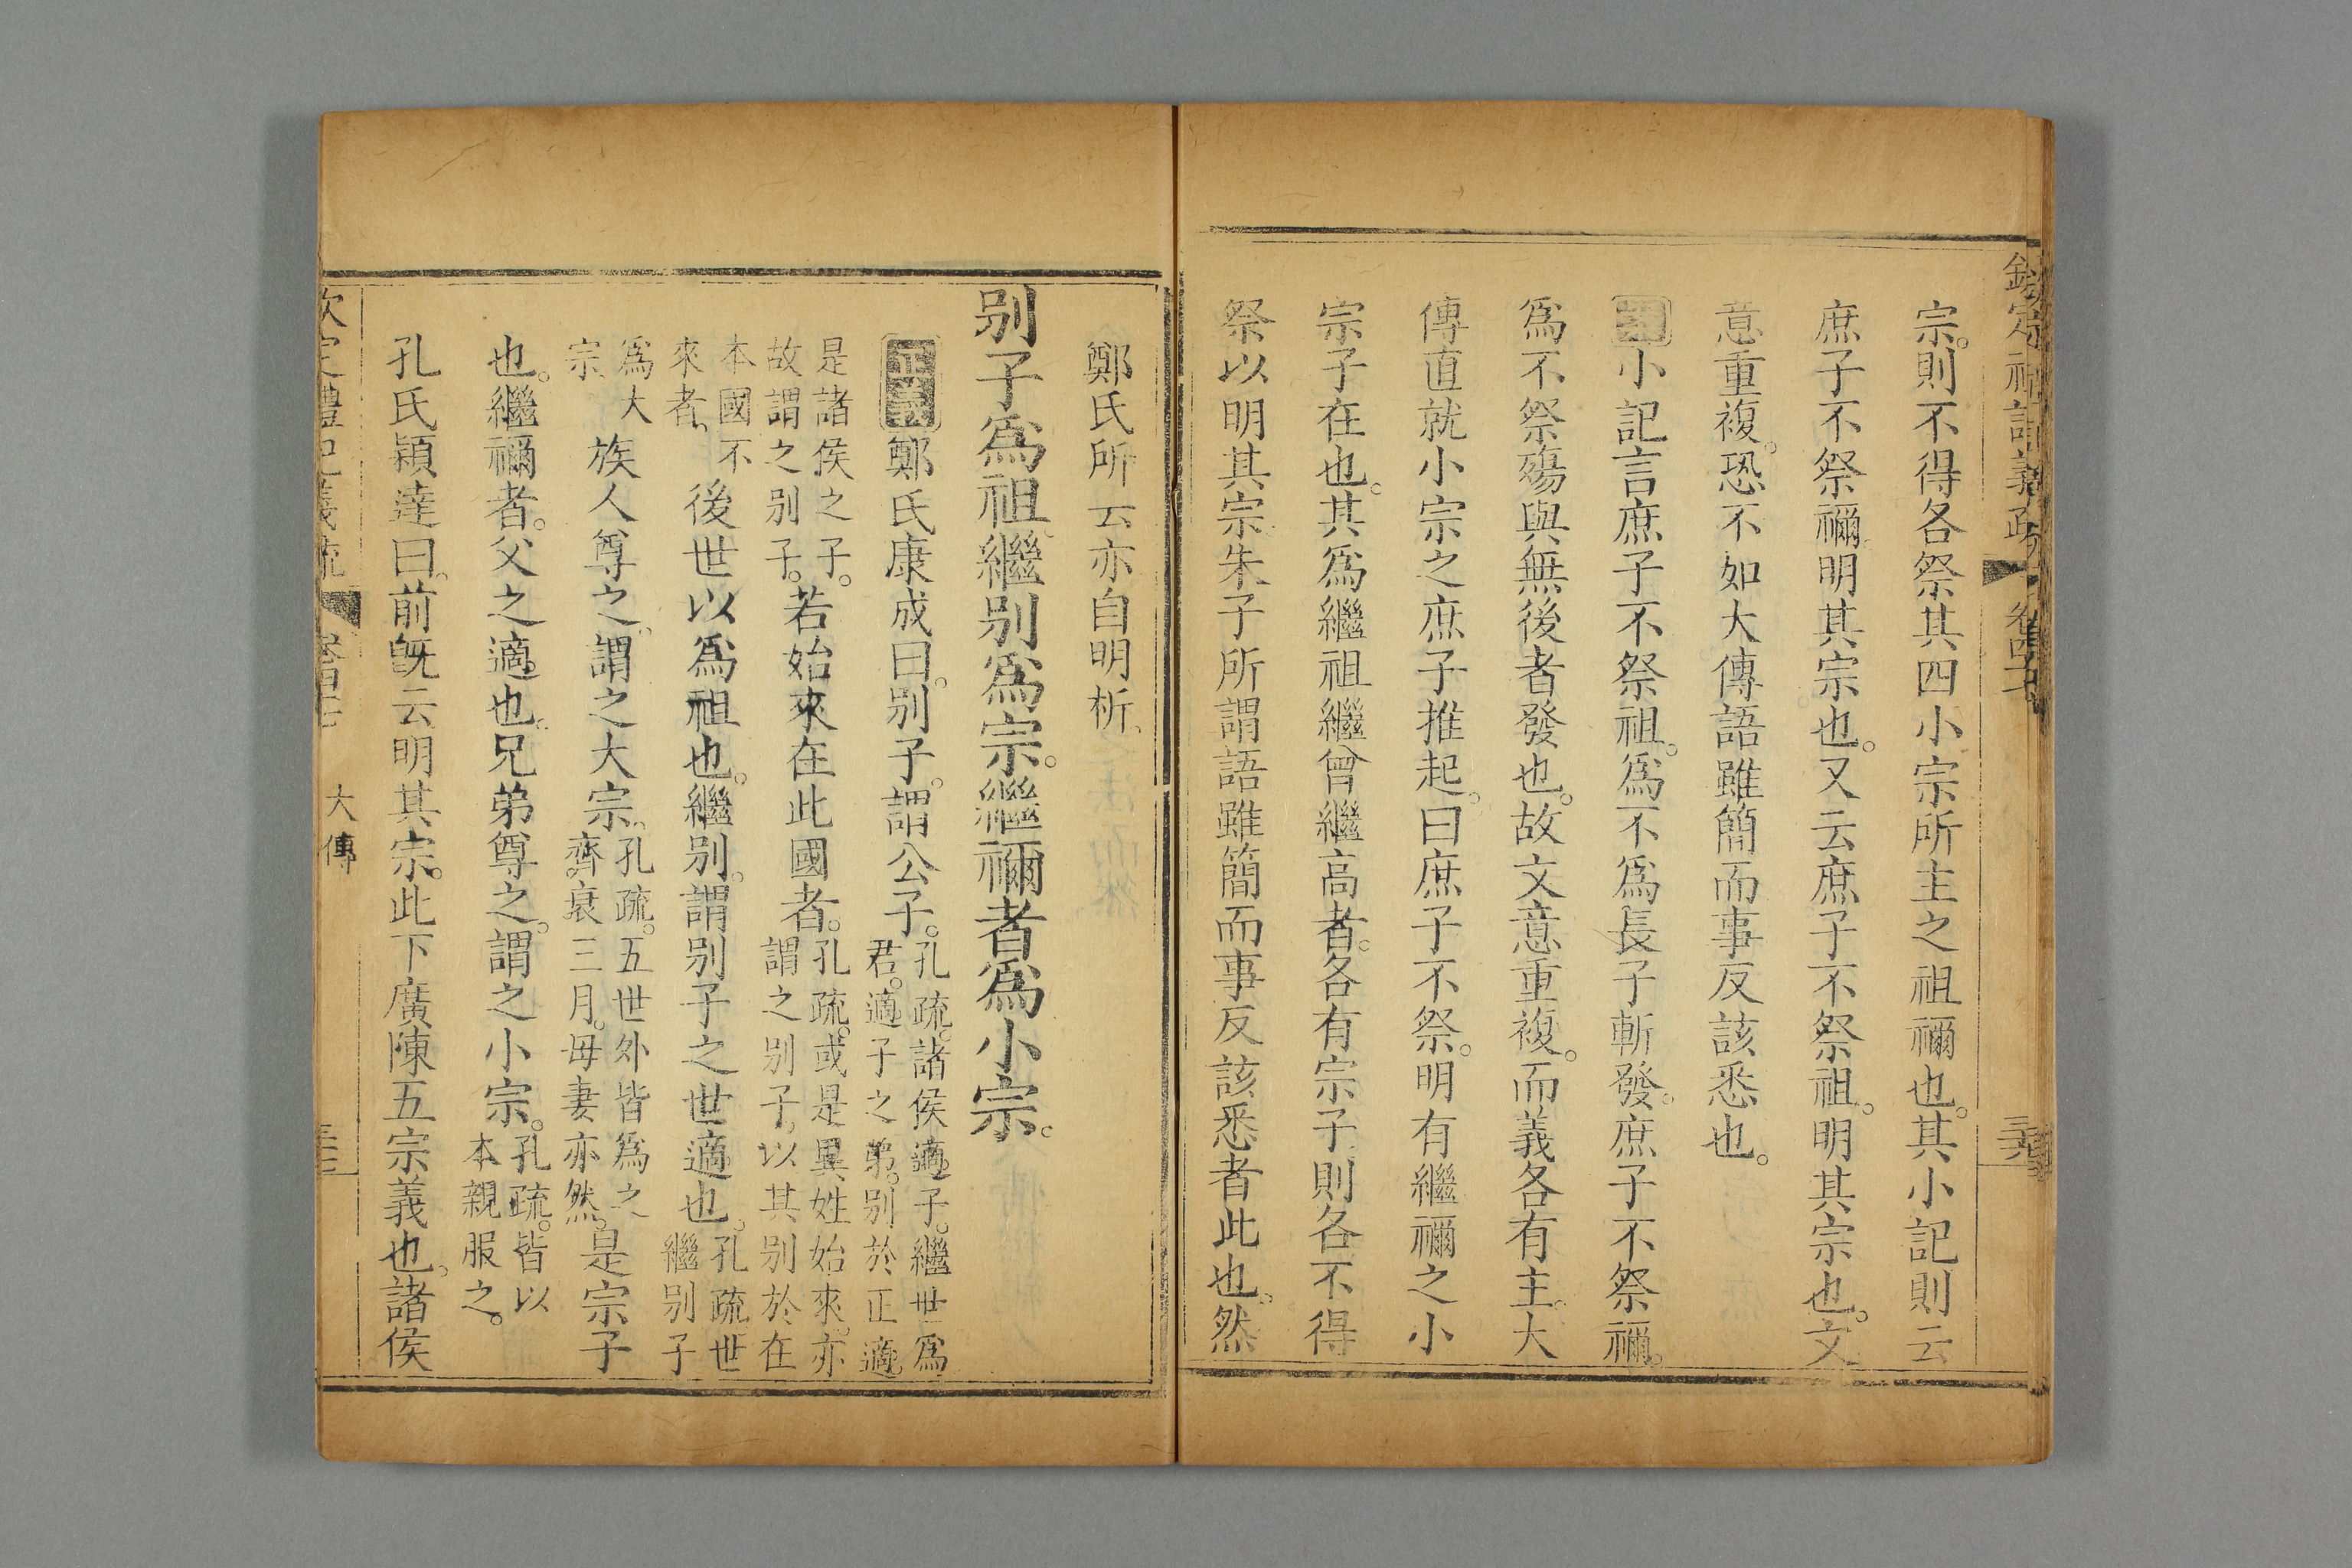 宗。則不得各祭其四小宗所主之祖禰也。其小記則云
庶子不祭禰。明其宗也。又云庶子不祭祖。明其宗也。文
意重複。恐不如大傳語雖簡而事反該悉也。
小記言庶子不祭祖。爲不爲長子斬發。庶子不祭禰。
爲不祭殤與無後者發也。故文意重複。而義各有主。大
傳直就小宗之庶子推起。曰庶子不祭。明有繼禰之小
宗子在也。其爲繼祖繼曾繼高者。各有宗子。則各不得
祭以明其宗。朱子所謂語雖簡而事反該悉者此也。然
鄭氏所云亦自明析、
别子爲祖。繼别爲宗。繼禰者爲小宗。
正義鄭氏康成曰。别子。謂公子。孔疏。諸侯適子。繼世爲
君。適子之弟。别於正適
是諸侯之子。
故謂之别子。若始來在此國者。孔疏。或是異姓始來。亦
謂之别子。以其别於在
本國不
來者。後世以爲祖也。繼别。謂别子之世適也。孔疏。世
繼别子
爲大
宗。族人尊之。謂之大宗。孔疏。五世外皆爲之
齊衰三月。毋妻亦然。是宗子
也。繼禰者。父之適也。兄弟尊之。謂之小宗。孔疏。皆以
本親服之。
孔氏穎達曰。前既云明其宗。此下廣陳五宗義也。諸侯
大傳